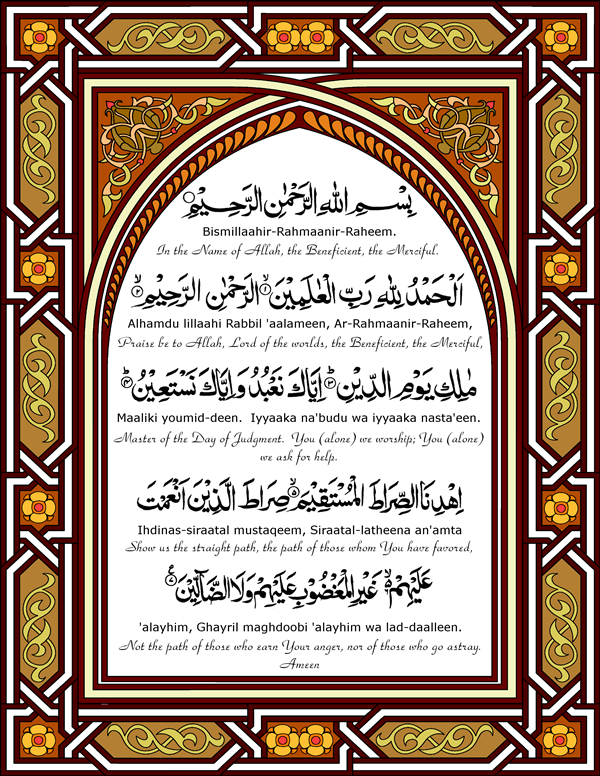 بِسْمِ اللهِ الرَّحْمٰنِ الرَّحِيْمِ ○
Bismillaahir-Rahmaanir-Raheem.
In the Name of Allah, the Beneficient, the Merciful.
اَلْحَمْدُ لِلّٰهِ رَبِّ الْعٰلَمِيْنَ ۙ﴿۱﴾ الرَّحْمٰنِ الرَّحِيْمِ ۙ﴿۲﴾
Alhamdu lillaahi Rabbil 'aalameen, Ar-Rahmaanir-Raheem,
Praise be to Allah, Lord of the worlds, the Beneficient, the Merciful,
مٰلِكِ يَوْمِ الدِّيْنِ ؕ﴿۳﴾ اِيَّاكَ نَعْبُدُ وَاِيَّاكَ نَسْتَعِيْنُ ؕ﴿۴﴾
Maaliki youmid-deen. Iyyaaka na'budu wa iyyaaka nasta'een.
Master of the Day of Judgment. You (alone) we worship; You (alone)
we ask for help.
اِهْدِنَا الصِّرَاطَ الْمُسْتَقِيْمَ ۙ﴿۵﴾ صِرَاطَ الَّذِيْنَ اَنْعَمْتَ
Ihdinas-siraatal mustaqeem, Siraatal-latheena an'amta
Show us the straight path, the path of those whom You have favored,
عَلَيْهِمْ ۙ﴿۶﴾ غَيْرِ الْمَغْضُوْبِ عَلَيْهِمْ وَلَا الضَّآلِّيْنَ ﴿۷﴾ ع
'alayhim, Ghayril maghdoobi 'alayhim wa lad-daalleen.
Not the path of those who earn Your anger, nor of those who go astray.
Ameen